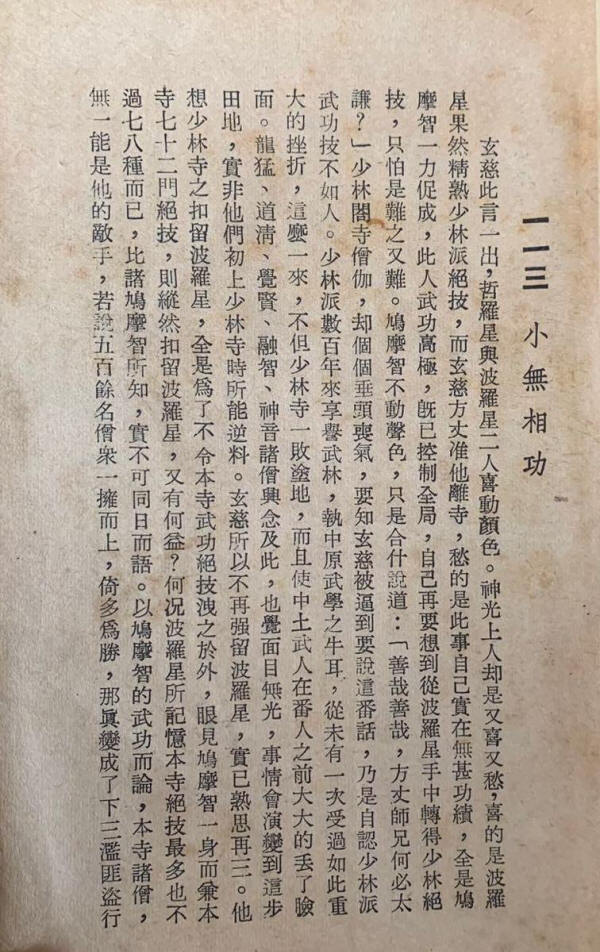 一一三 小無相功
玄慈此言一出，哲羅星與波羅星二人喜動顏色。神光上人却是又喜又愁，喜的是波羅
星果然精熟少林派絕技，而玄慈方丈准他離寺，愁的是此事自己實在無甚功績，全是鳩
摩智一力促成，此人武功高極，旣已控制全局，自己再要想到從波羅星手中轉得少林絕
技，只怕是難之又難。鳩摩智不動聲色，只是合什說道：「善哉善哉，方丈師兄何必太
謙？」少林闔寺僧伽，却個個垂頭喪氣，要知玄慈被逼到要說這番話，乃是自認少林派
武功技不如人。少林派數百年來享譽武林，執中原武學之牛耳，從未有一次受過如此重
大的挫折，這麼一來，不但少林寺一敗塗地，而且使中土武人在番人之前大大的丢了臉
面。龍猛、道淸、覺賢、融智、神音諸僧興念及此，也覺面目無光，事情會演變到這步
田地，實非他們初上少林寺時所能逆料。玄慈所以不再强留波羅星，實已熟思再三。他
想少林寺之扣留波羅星，全是爲了不令本寺武功絕技洩之於外，眼見鳩摩智一身而兼本
寺七十二門絕技，則縱然扣留波羅星，又有何益？何況波羅星所記憶本寺絕技最多也不
過七八種而已，比諸鳩摩智所知，實不可同日而語。以鳩摩智的武功而論，本寺諸僧，
無一能是他的敵手，若說五百餘名僧衆一擁而上，倚多爲勝，那眞變成了下三濫匪盜行